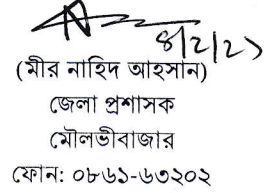 ৪/২/২১
(মীর নাহিদ আহসান)
জেলা প্রশাসক
মৌলভীবাজার
ফোন: ০৮৬১-৬৩২০২